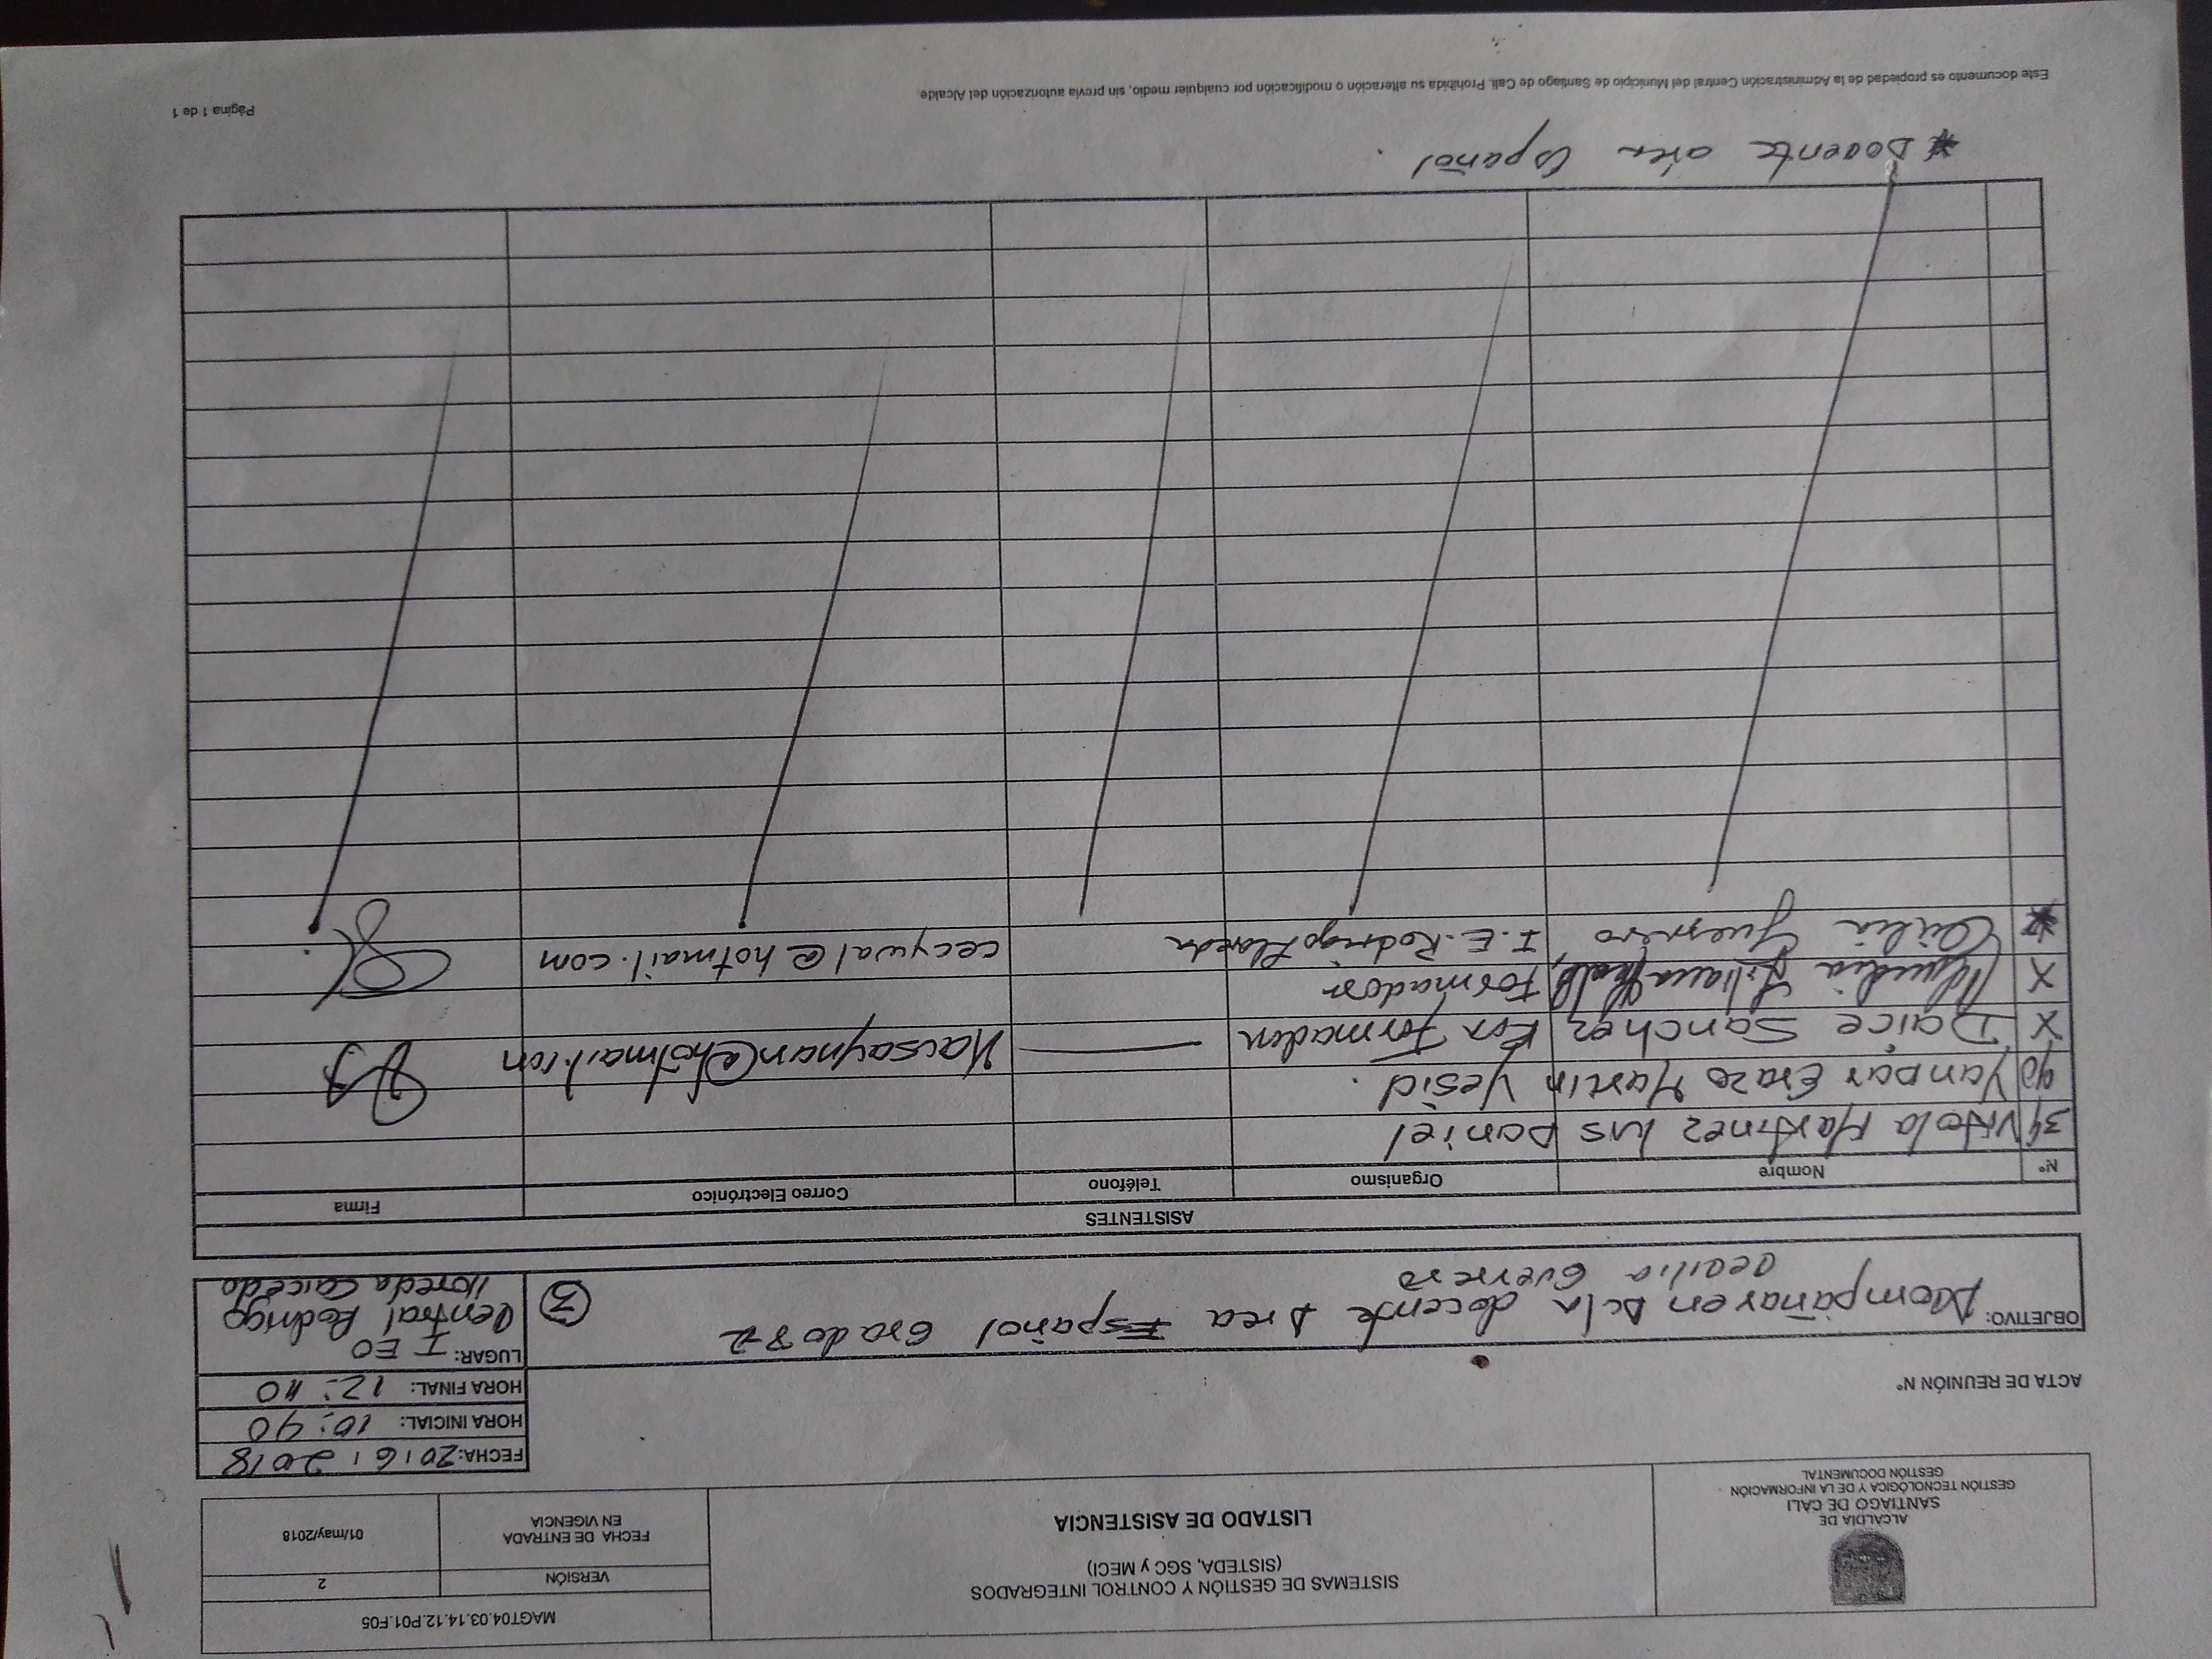 ALCALDÍA DE
SANTIAGO DE CALI
GESTIÓN TECNOLÓGICA Y DE LA INFORMACIÓN
GESTIÓN DOCUMENTAL
SISTEMAS DE GESTIÓN Y CONTROL INTEGRADOS
(SISTEDA, SGC y MECI)
LISTADO DE ASISTENCIA
MAGT04.03.14.12.P01.F05
VERSIÓN 2
FECHA DE ENTRADA
EN VIGENCIA
01/may/2018
FECHA: 20 / 6 / 2018
HORA INICIAL: 10:40
HORA FINAL: 12:10
ACTA DE REUNIÓN N°
LUGAR: I EO
Central Rodrigo
lloreda Caicedo
OBJETIVO: Acompañar en Aula docente Area Español Grado 8-2
Cecilia Guerrero
3
ASISTENTES
N° Nombre Organismo Teléfono Correo Electrónico Firma
39 Vitola Martinez luis Daniel
40 Yandar Erazo Martin Yesid.
X Daice Sanchez Formadora
X Claudia Liliana Formadora
* Cecilia Guerrero I.E. Rodrigo Lloreda cecywal@hotmail.com
* Docente área Español.
Página 1 de 1
Este documento es propiedad de la Administración Central del Municipio de Santiago de Cali. Prohibida su alteración o modificación por cualquier medio, sin previa autorización del Alcalde.